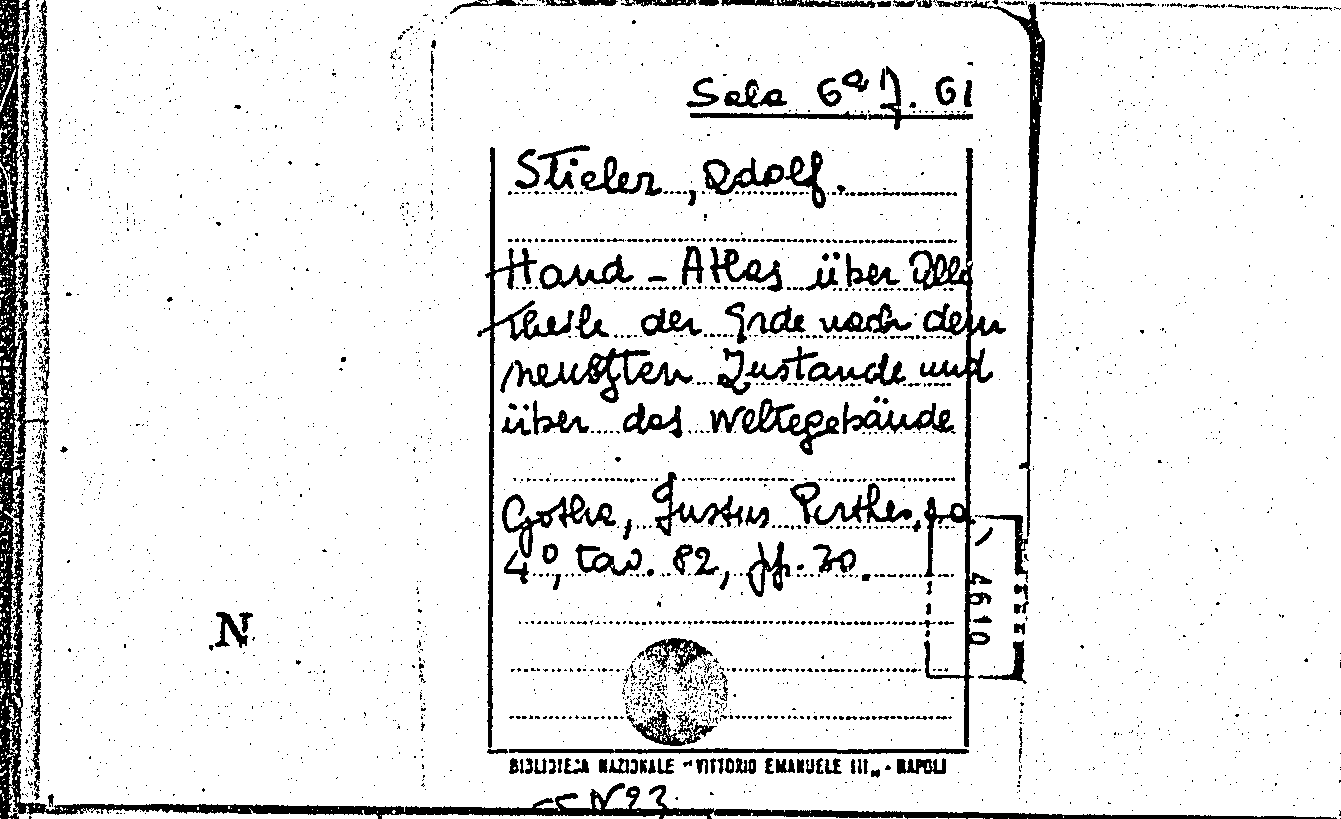 Sala 6ª J. 61
Stieler, Adolf.
Hand - Atlas über Alle
Theile der Erde nach dem
neusten Zustande und
über das Weltegebäude
Gotha, Justus Perthes, s. a.
4º, tav. 82, pp. 30.
4610
N
BIBLIOTECA NAZIONALE "VITTORIO EMANUELE III„ - NAPOLI